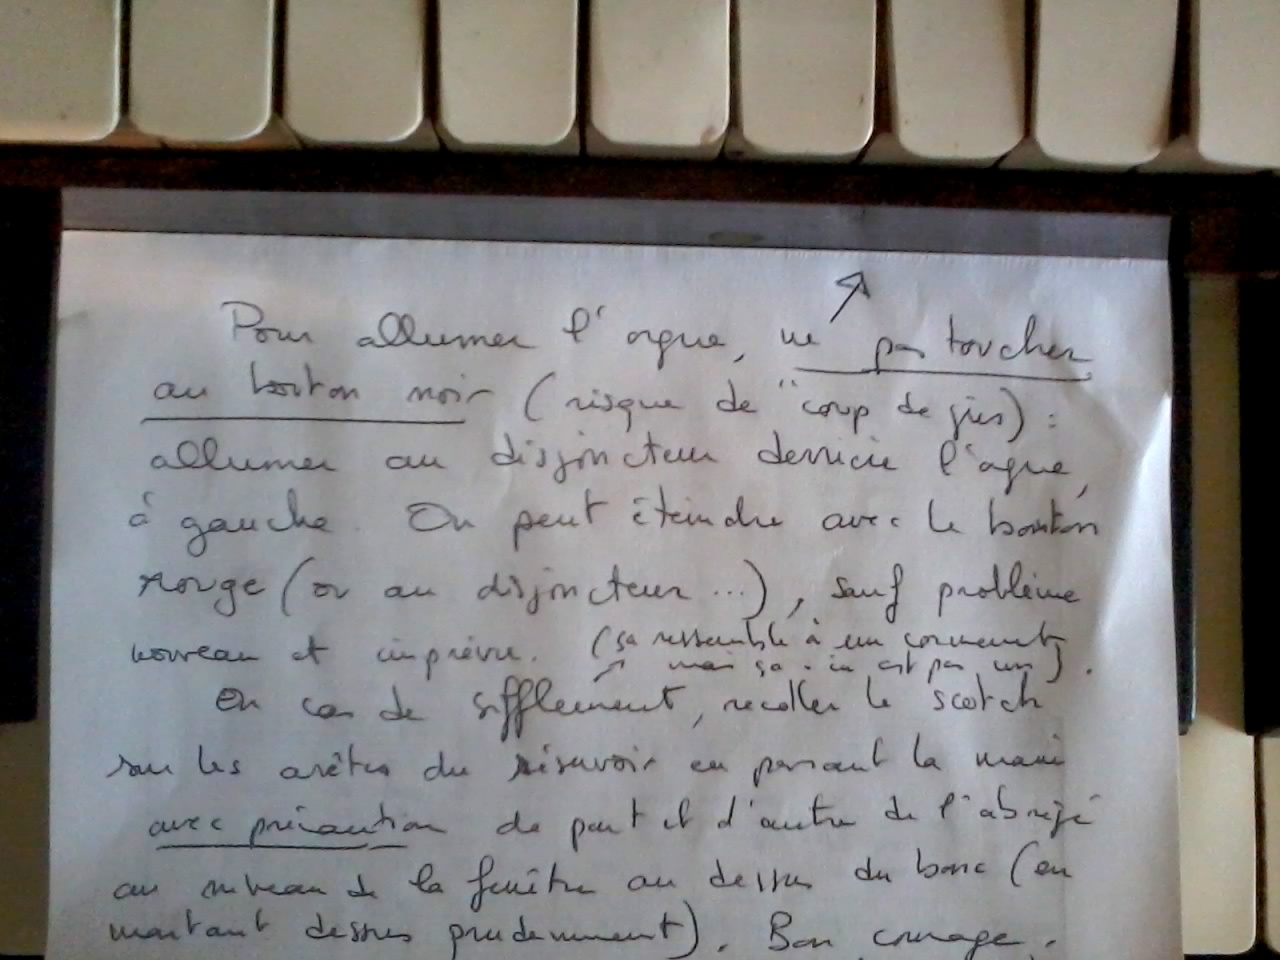 Pour allumer l'orgue, ne pas toucher
au bouton noir (risque de "coup de jus) :
allumer au disjoncteur derrière l'orgue,
à gauche. On peut éteindre avec le bouton
rouge (ou au disjoncteur ...), sauf problème
nouveau et imprévu. (ça ressemble à un cornement,
mais ça n'en est pas un).
En cas de sifflement, recoller le scotch
sur les arêtes du réservoir en passant la main
avec précaution de part et d'autre de l'abrégé
au niveau de la fenêtre au dessus du banc (en
montant dessus prudemment). Bon courage.